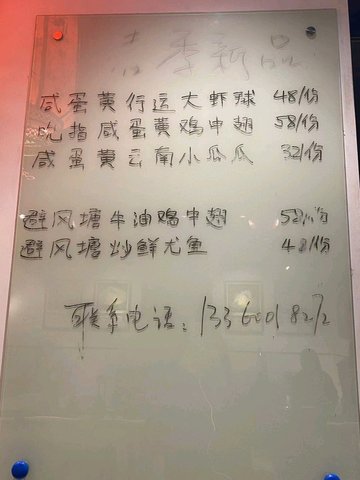 春季新品
咸蛋黄行运大虾球 48/份
吮指咸蛋黄鸡中翅 58/份
咸蛋黄云南小瓜瓜 32/份
避风塘牛油鸡中翅 58/份
避风塘炒鲜尤鱼 48/份
联系电话:13360018272